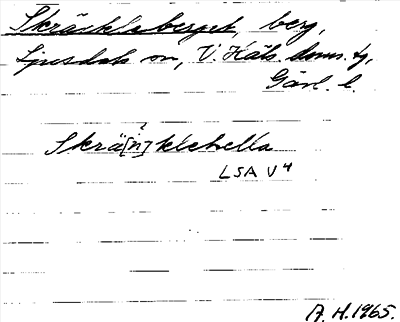 Skräckleberget, berg,
Ljusdals sn, V. Häls. doms. tg,
Gävl. l.
Skrä[n]?klehella
LSA V4
A.H. 1965.